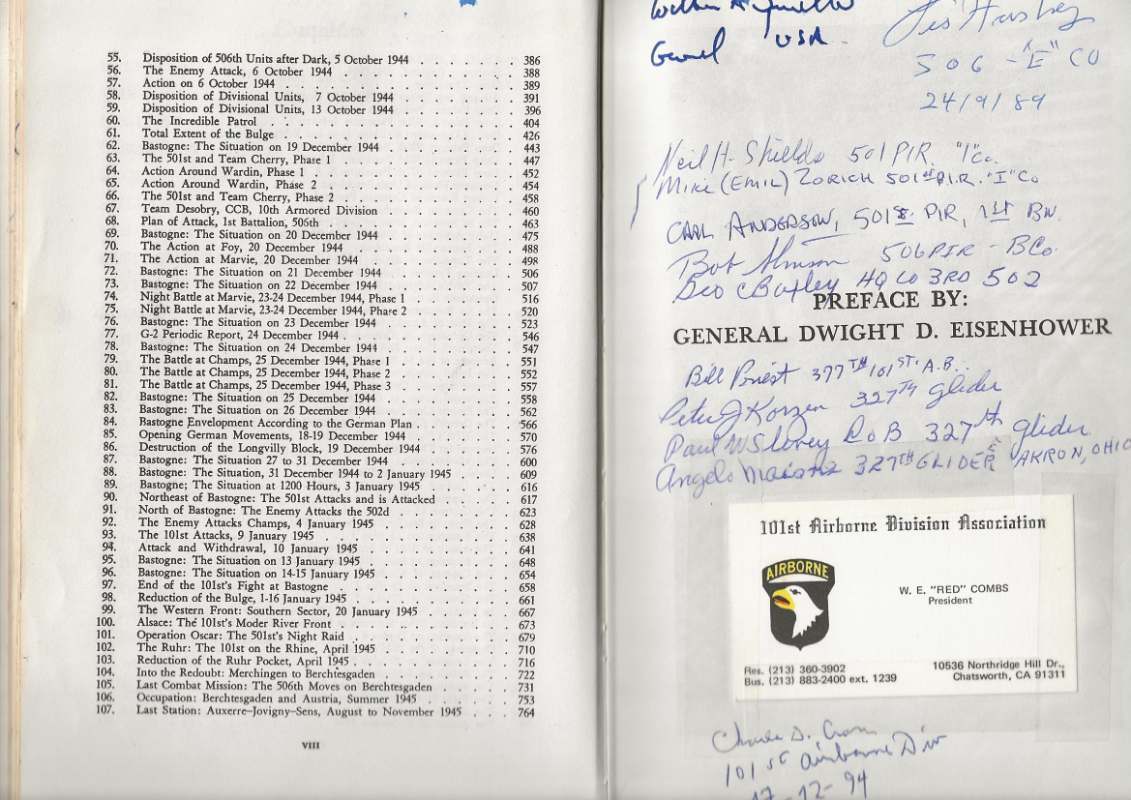 55. Disposition of 506th Units after Dark, 5 October 1944 . . . . . . . 386
56. The Enemy Attack, 6 October 1944 . . . . . . . 388
57. Action on 6 October 1944 . . . . . . . 389
58. Disposition of Divisional Units, 7 October 1944 . . . . . . . 391
59. Disposition of Divisional Units, 13 October 1944 . . . . . . . 396
60. The Incredible Patrol . . . . . . . 404
61. Total Extent of the Bulge . . . . . . . 426
62. Bastogne: The Situation on 19 December 1944 . . . . . . . 443
63. The 501st and Team Cherry, Phase 1 . . . . . . . 447
64. Action Around Wardin, Phase 1 . . . . . . . 452
65. Action Around Wardin, Phase 2 . . . . . . . 454
66. The 501st and Team Cherry, Phase 2 . . . . . . . 458
67. Team Desobry, CCB, 10th Armored Division . . . . . . . 460
68. Plan of Attack, 1st Battalion, 506th . . . . . . . 463
69. Bastogne: The Situation on 20 December 1944 . . . . . . . 475
70. The Action at Foy, 20 December 1944 . . . . . . . 488
71. The Action at Marvie, 20 December 1944 . . . . . . . 498
72. Bastogne: The Situation on 21 December 1944 . . . . . . . 506
73. Bastogne: The Situation on 22 December 1944 . . . . . . . 507
74. Night Battle at Marvie, 23-24 December 1944, Phase 1 . . . . . . . 516
75. Night Battle at Marvie, 23-24 December 1944, Phase 2 . . . . . . . 520
76. Bastogne: The Situation on 23 December 1944 . . . . . . . 523
77. G-2 Periodic Report, 24 December 1944 . . . . . . . 546
78. Bastogne: The Situation on 24 December 1944 . . . . . . . 547
79. The Battle at Champs, 25 December 1944, Phase 1 . . . . . . . 551
80. The Battle at Champs, 25 December 1944, Phase 2 . . . . . . . 552
81. The Battle at Champs, 25 December 1944, Phase 3 . . . . . . . 557
82. Bastogne: The Situation on 25 December 1944 . . . . . . . 558
83. Bastogne: The Situation on 26 December 1944 . . . . . . . 562
84. Bastogne Envelopment According to the German Plan . . . . . . . 566
85. Opening German Movements, 18-19 December 1944 . . . . . . . 570
86. Destruction of the Longvilly Block, 19 December 1944 . . . . . . . 576
87. Bastogne: The Situation 27 to 31 December 1944 . . . . . . . 600
88. Bastogne: The Situation, 31 December 1944 to 2 January 1945 . . . . . . . 609
89. Bastogne; The Situation at 1200 Hours, 3 January 1945 . . . . . . . 616
90. Northeast of Bastogne: The 501st Attacks and is Attacked . . . . . . . 617
91. North of Bastogne: The Enemy Attacks the 502d . . . . . . . 623
92. The Enemy Attacks Champs, 4 January 1945 . . . . . . . 628
93. The 101st Attacks, 9 January 1945 . . . . . . . 638
94. Attack and Withdrawal, 10 January 1945 . . . . . . . 641
95. Bastogne: The Situation on 13 January 1945 . . . . . . . 648
96. Bastogne: The Situation on 14-15 January 1945 . . . . . . . 654
97. End of the 101st's Fight at Bastogne . . . . . . . 658
98. Reduction of the Bulge, 1-16 January 1945 . . . . . . . 661
99. The Western Front: Southern Sector, 20 January 1945 . . . . . . . 667
100. Alsace: The 101st's Moder River Front . . . . . . . 673
101. Operation Oscar: The 501st's Night Raid . . . . . . . 679
102. The Ruhr: The 101st on the Rhine, April 1945 . . . . . . . 710
103. Reduction of the Ruhr Pocket, April 1945 . . . . . . . 716
104. Into the Redoubt: Merchingen to Berchtesgaden . . . . . . . 722
105. Last Combat Mission: The 506th Moves on Berchtesgaden . . . . . . . 731
106. Occupation: Berchtesgaden and Austria, Summer 1945 . . . . . . . 753
107. Last Station: Auxerre-Jovigny-Sens, August to November 1945 . . . . . . . 764
VIII
USA
506 - "E" CO
24/9/89
Neil H. Shields 501 PIR. "I" Co.
Mike (EMIL) ZORICH 501st P.I.R. "I" Co
CARL ANDERSON, 501st PIR, 1st BN
Bob 506 PIR - B Co.
Geo C HQ CO 3RD 502
PREFACE BY:
GENERAL DWIGHT D. EISENHOWER
Bill Priest 377TH 101ST. A.B.
Peter J Korzen 327TH glider
Paul W Co B 327th glider
Angelo 327TH GLIDER AKRON, OHIO
101st Airborne Division Association
AIRBORNE
W. E. "RED" COMBS
President
Res. (213) 360-3902
Bus. (213) 883-2400 ext. 1239
10536 Northridge Hill Dr.,
Chatsworth, CA 91311
Charles D.
101st Airborne Div
17-12-94